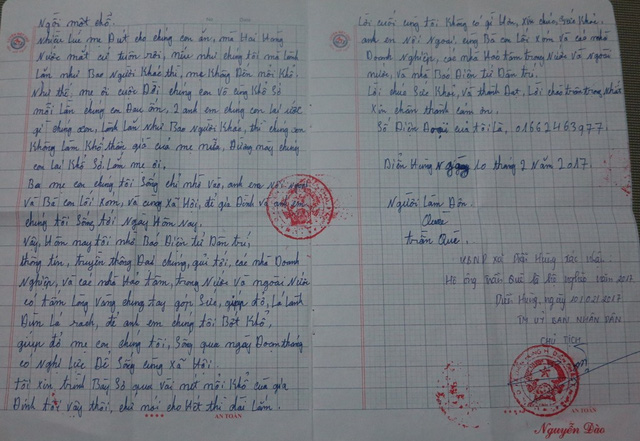 Ngồi một chỗ.
Nhiều lúc mẹ Đút cho chúng con ăn, mà Hai Hàng
Nước mắt cứ tuôn rơi, nếu như chúng tôi mà lành
Lặn như Bao Người Khác thì, mẹ Không Đến nỗi Khổ
Như thế, mẹ ơi cuộc Đời chúng con Vô cùng Khổ Sở
mỗi Lần chúng con Đau ốm, 2 anh em chúng con lại ước
gì chúng con, Lành Lặn Như Bao Người Khác, thì chúng con
Không Làm Khổ thân già của mẹ nữa, Đằng này chúng
con lại Khổ Sở Lắm mẹ ơi,
Ba mẹ con chúng tôi Sống chỉ nhờ Vào, anh em Nội Ngoại
Và Bà con Lối Xóm, và cùng Xã Hội, để gia Đình Và anh em
chúng tôi Sống Tới Ngày Hôm Nay,
Vậy, Hôm nay tôi nhờ Báo Điện tử Dân trí,
thông tin, truyền thông Đại chúng, gửi tới, các nhà Doanh
Nghiệp, Và các nhà Hảo tâm, trong Nước Và ngoài Nước
có tấm Lòng Vàng chung tay góp Sức, giúp đỡ, Lá Lành
Đùm Lá rách, để anh em chúng tôi Bớt Khổ,
giúp đỡ mẹ con chúng tôi, Sống qua ngày Đoạn tháng
có Nghị Lực Để Sống cùng Xã Hội.
tôi Xin trình Bày Sơ qua Vài nét nỗi Khổ của gia
Đình tôi Vậy thôi, chứ nói cho Hết thì dài Lắm.
AN TOÀN
Lời cuối cùng tôi Không có gì Hơn, Xin chúc, Sức Khỏe,
anh em Nội Ngoại, cùng Bà con Lối Xóm Và các nhà
Doanh Nghiệp, các nhà Hảo tâm trong Nước Và Ngoài
nước, Và nhà Báo Điện tử Dân trí.
Lời chúc Sức Khỏe, Và thành Đạt, Lời chào trân trọng Nhất
Xin chân thành cảm ơn.
Số Điện thoại của tôi Là, 01662463977.
Diễn Hưng Ngày 10 tháng 2 Năm 2017.
Người Làm Đơn.
Quế
trần Quế.
UBND xã Diễn Hưng xác nhận
Hộ ông Trần Quế là hộ nghèo năm 2017
Diễn Hưng, ngày 10/02/2017
TM UỶ BAN NHÂN DÂN
CHỦ TỊCH
AN TOÀN
Nguyễn Đào